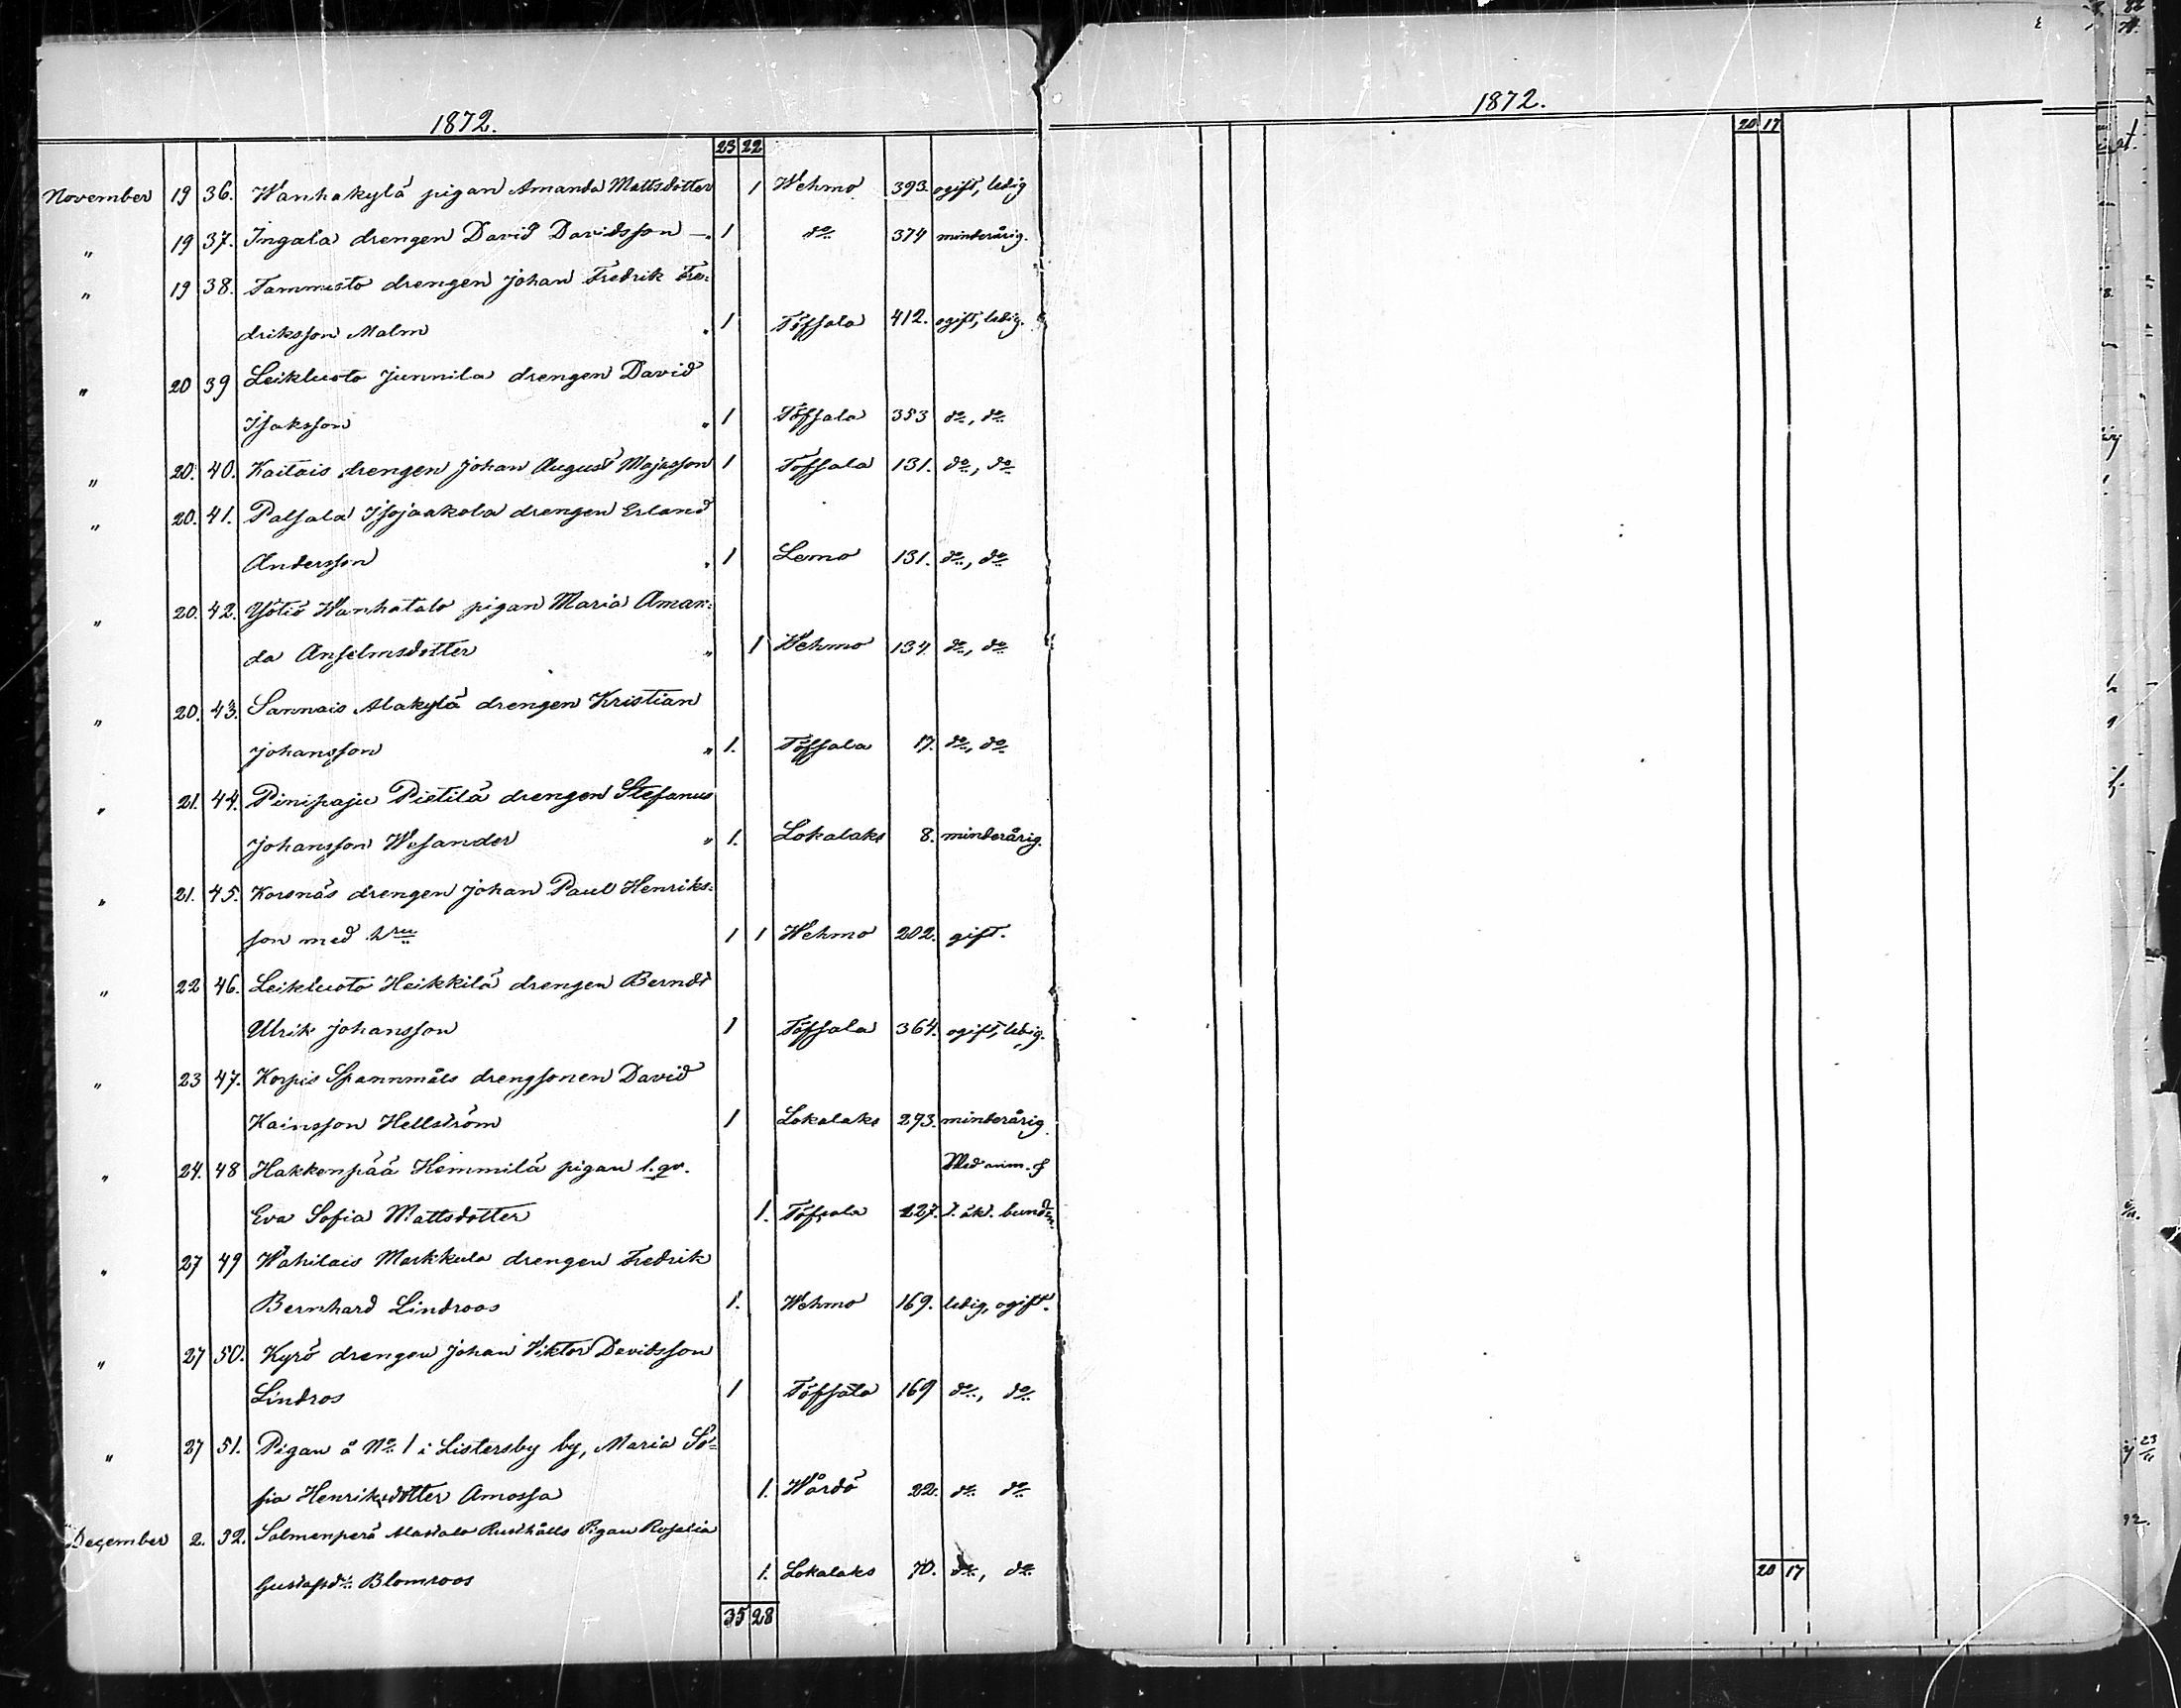 1872.
23 22
November 19 36. Wanhakylä pigan Amanda Mattsdotter 1 Wehmo 393. ogift, ledig
" 19 37. Ingala drengen David Davidsson — 1 do 374 minderårig.
" 19 38. Tammisto drengen Johan Fredrik Fre-
driksson Malm " 1 Töfsala 412. ogift, ledig.
" 20 39 Leikluoto Junnila drengen David
Isaksson " 1 Töfsala 353 do, do
" 20. 40. Kaitais drengen Johan August Majasson 1 Töfsala 131. do, do
" 20. 41. Palsala Isojaakola drengen Erland
Andersson " 1 Lemo 131. do, do
" 20. 42. Yötiö Wanhatalo pigan Maria Aman-
da Anselmsdotter " 1 Wehmo 134 do, do
" 20. 43. Sannais Alakylä drengen Kristian
Johansson " 1. Töfsala 17. do, do
" 21. 44. Pinipaju Pietilä drengen Stefanus
Johansson Wesander " 1. Lokalaks 8. minderårig.
" 21. 45. Korsnäs drengen Johan Paul Henriks-
son med hru 1 1 Wehmo 202. gift.
" 22 46. Leikluoto Heikkilä drengen Berndt
Ulrik Johansson 1 Töfsala 364. ogift, ledig.
" 23 47. Korpis Spannmåls drengsonen David
Kainsson Hellström 1 Lokalaks 273. minderårig
" 24. 48 Hakkenpää Hemmilä pigan l. qv. Med
Eva Sofia Mattsdotter 1. Töfsala 227. t. äkt. bunden.
" 27 49 Wahilais Markkula drengen Fredrik
Bernhard Lindroos 1. Wehmo 169. ledig, ogift.
" 27 50. Kyrö drengen Johan Viktor Davidsson
Lindros 1 Töfsala 169 do, do
" 27 51. Pigan å No 1 i Listersby by, Maria So-
fia Henriksdotter Amossa 1. Wårdö 22. do do
December 2. 32. Salmenperä Alastalo Rusthålls Pigan Rosalia
Gustafsdr Blomroos 1. Lokalaks 70. do, do
35 28
1872.
20 17
20 17